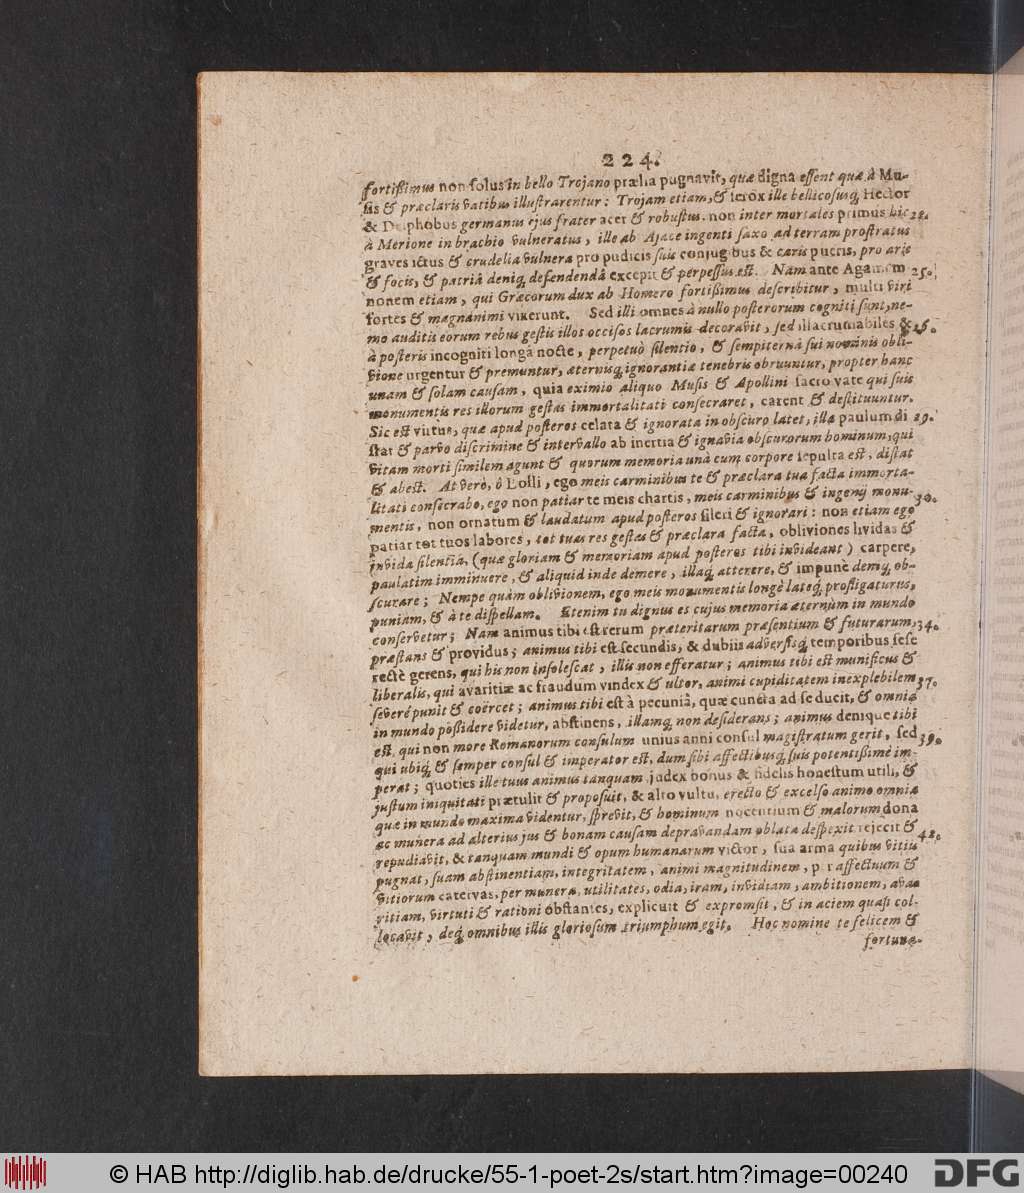 224.
fortißimus non solus in bello Trojano prælia pugnavit, quæ digna essent quæ à Mu-
sis & præclaris vatibus illustrarentur: Trojam etiam, & ferox ille bellicosusq́; Hector
& Deiphobus germanus ejus frater acer & robustus. non inter mortales primus hic 21.
à Merione in brachio vulneratus, ille ab Ajace ingenti saxo ad terram prostratus
graves ictus & crudelia vulnera pro pudicis suis conjugibus & caris pueris, pro aris
& focis, & patriâ deniq́; defendendâ excepit & perpessus est. Nam ante Agamem 25.
nonem etiam, qui Græcorum dux ab Homero fortißimus describitur, multi viri
fortes & magnanimi vixerunt. Sed illi omnes à nullo posterorum cogniti sunt, ne-
mo auditis eorum rebus gestis illos occisos lacrumis decoravit, sed illacrumabiles & 26.
à posteris incogniti longâ nocte, perpetuò silentio, & sempiternâ sui nominis obli-
vione urgentur & premuntur, æternisq́; ignorantiæ tenebris obruuntur, propter hanc
unam & solam causam, quia eximio aliquo Musis & Apollini sacro vate qui suis
monumentis res illorum gestas immortalitati consecraret, carent & destituuntur.
Sic est virtus, quæ apud posteros celata & ignorata in obscuro latet, illa paulum di 29.
stat & parvo discrimine & intervallo ab inertia & ignavia obscurorum hominum, qui
vitam morti similem agunt & quorum memoria unà cum corpore sepulta est, distat
& abest. At verò, ô Lolli, ego meis carminibus te & præclara tua facta immorta-
litati consecrabo, ego non patiar te meis chartis, meis carminibus & ingenij monu- 30.
mentis, non ornatum & laudatum apud posteros sileri & ignorari: non etiam ego
patiar tot tuos labores, tot tuas res gestas & præclara facta, obliviones lividas &
invida silentia, (quæ gloriam & memoriam apud posteros tibi invideant) carpere,
paulatim imminuere, & aliquid inde demere, illaq́; atterere, & impunè deniq́; ob-
scurare; Nempe quàm oblivionem, ego meis monumentis longè lateq́; profligaturus,
puniam, & à te dispellam. Etenim tu dignus es cujus memoria æternùm in mundo
conservetur; Nam animus tibi est rerum præteritarum præsentium & futurarum, 34.
præstans & providus; animus tibi est secundis, & dubiis adversisq́; temporibus sese
rectè gerens, qui his non insolescat, illis non efferatur; animus tibi est munificus &
liberalis, qui avaritiæ ac fraudum vindex & ultor, animi cupiditatem inexplebilem 37.
severè punit & coërcet; animus tibi est à pecuniâ, quæ cuncta ad se ducit, & omnia
in mundo poßidere videtur, abstinens, illamq́; non desiderans; animus denique tibi
est, qui non more Romanorum consulum unius anni consul magistratum gerit, sed 39.
qui ubiq́; & semper consul & imperator est, dum sibi affectibusq́; suis potentißimè im-
perat; quoties ille tuus animus tanquam judex bonus & fidelis honestum utili, &
justum iniquitati prætulit & proposuit, & alto vultu, erecto & excelso animo omnia
quæ in mundo maxima videntur, sprevit, & hominum nocentium & malorum dona
ac munera ad alterius jus & bonam causam depravandam oblata despexit rejecit &
repudiavit, & tanquam mundi & opum humanarum victor, sua arma quibus vitiis 42.
pugnat, suam abstinentiam, integritatem, animi magnitudinem, per affectuum &
vitiorum catervas, per munera, utilitates, odia, iram, invidiam, ambitionem, ava-
ritiam, virtuti & rationi obstantes, explicuit & expromsit, & in aciem quasi col-
locavit, deq́; omnibus illis gloriosum triumphum egit. Hoc nomine te felicem &
fortuna-
© HAB http://diglib.hab.de/drucke/55-1-poet-2s/start.htm?image=00240
DFG